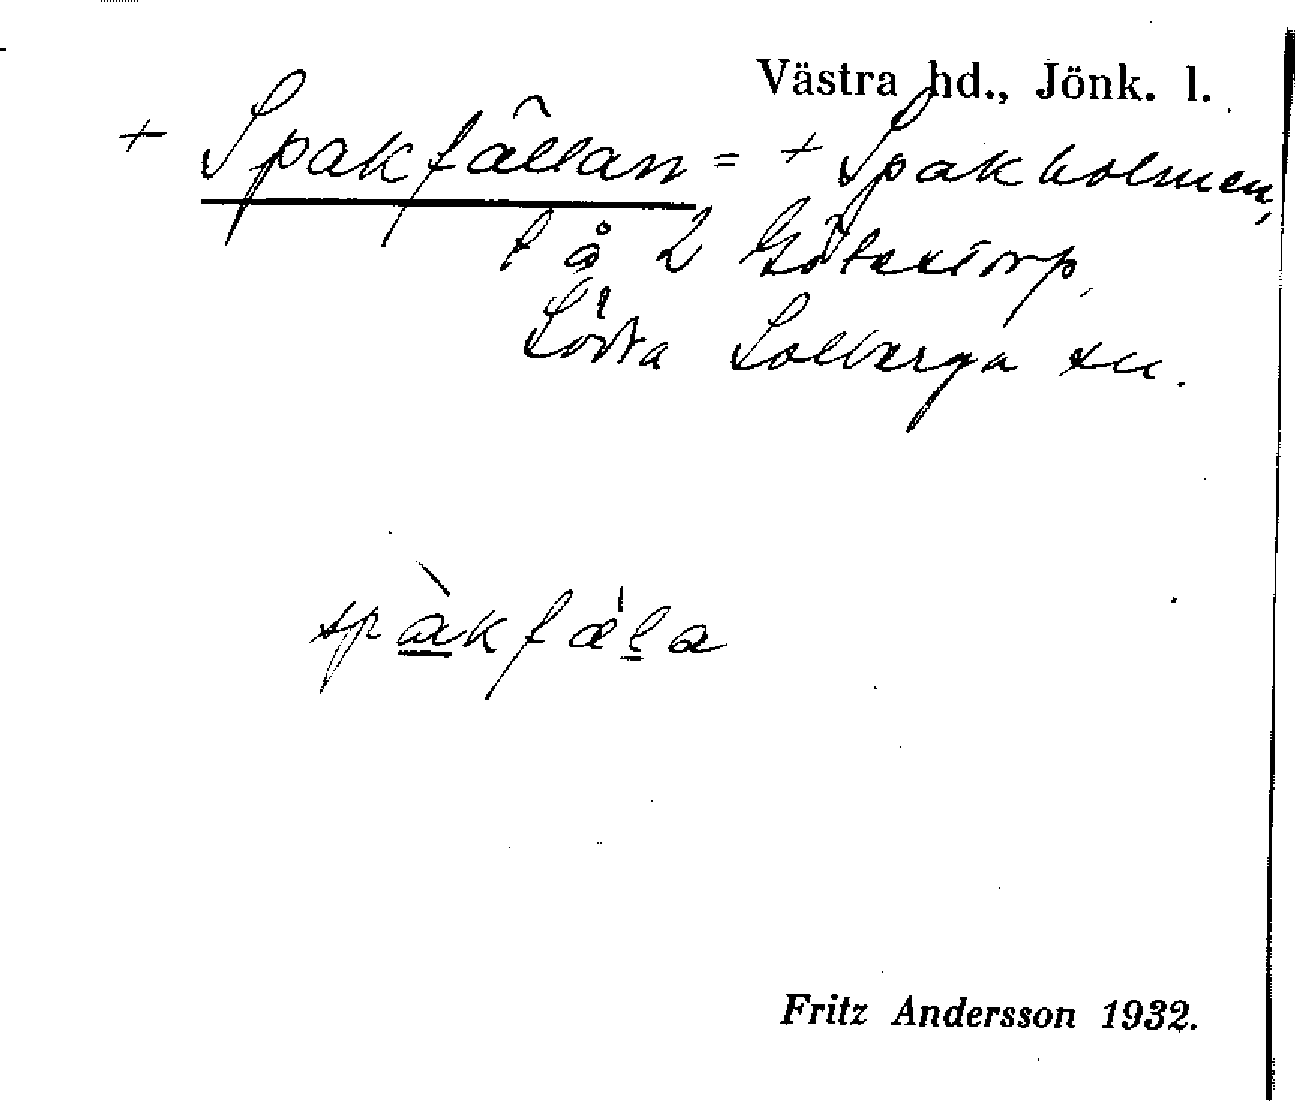 Västra hd., Jönk. l.
+ Spakfällan = + Spakholmen,
l å 2 Götestorp,
Södra Solberga sn.
spàkfäla
Fritz Andersson 1932.